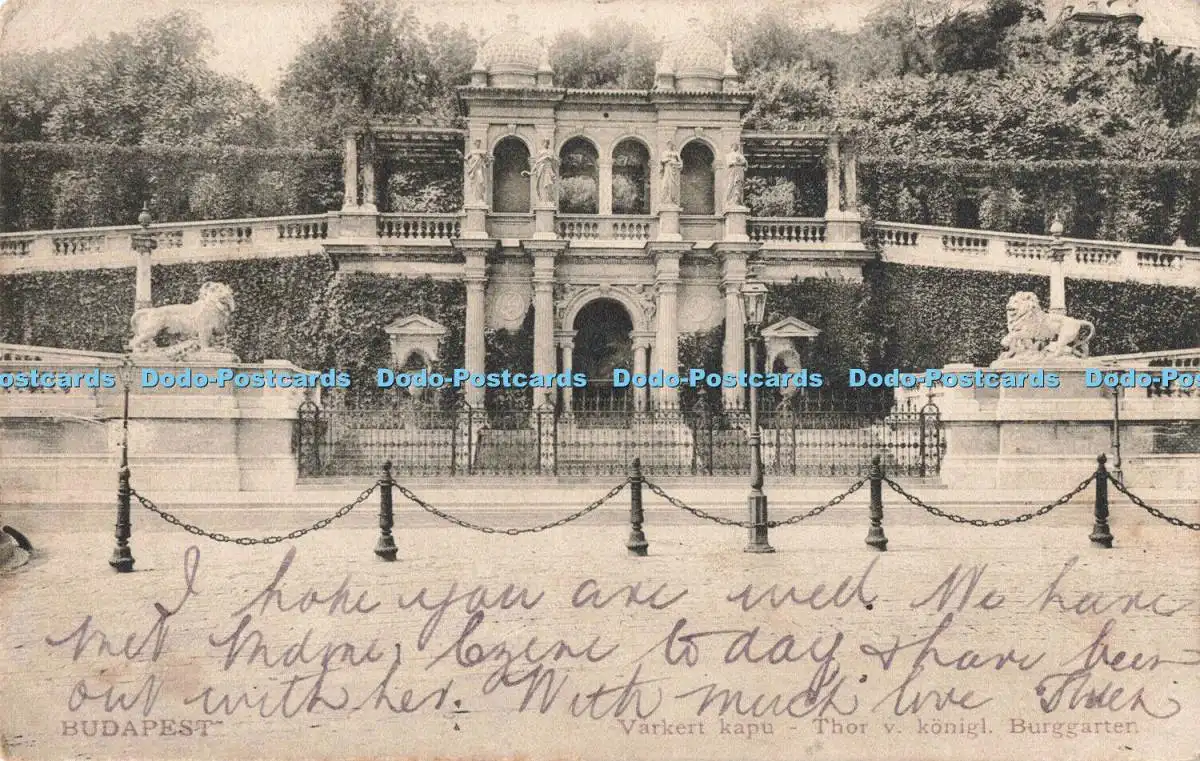 Dodo-Postcards Dodo-Postcards Dodo-Postcards Dodo-Postcards Dodo-Postcards Dodo-Postcards
I hope you are well We have
met today & have been
out with her. With much love
BUDAPEST
Várkert kapu - Thor v. königl. Burggarten